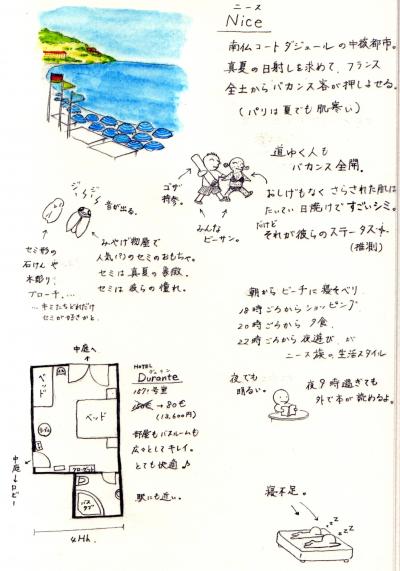 ニース
Nice
南仏コートダジュールの中核都市。
真夏の日射しを求めて、フランス
全土からバカンス客が押しよせる。
(パリは夏でも肌寒い)
道ゆく人も
バカンス全開。
ゴザ
持参。
みんな
ビーサン。
おしげもなくさらされた肌は
たいてい日焼けですごいシミ。
だけど
それが彼らのステータス
(推測)
ジージー
音が出る。
みやげ物屋で
人気のセミのおもちゃ。
セミは真夏の象徴。
セミは彼らの憧れ。
セミ形の
石けんや
木彫り、
ブローチ、…
…キミたちどれだけ
セミが好きかと。
朝からビーチに寝そべり
18時ごろからショッピング、
20時ごろから夕食、
22時ごろから夜遊び、が
ニース族の生活スタイル
夜でも
明るい。
夜9時過ぎても
外で本が読めるよ。
寝不足。
zzz
zzz
HOTEL
Durante
号室
→80€
(13,600円)
部屋もバスルームも
広々としてキレイ。
とても快適♪
駅にも近い。
中庭へ
ベッド
ベッド
クローゼット
バス
タブ
中庭
ロビー